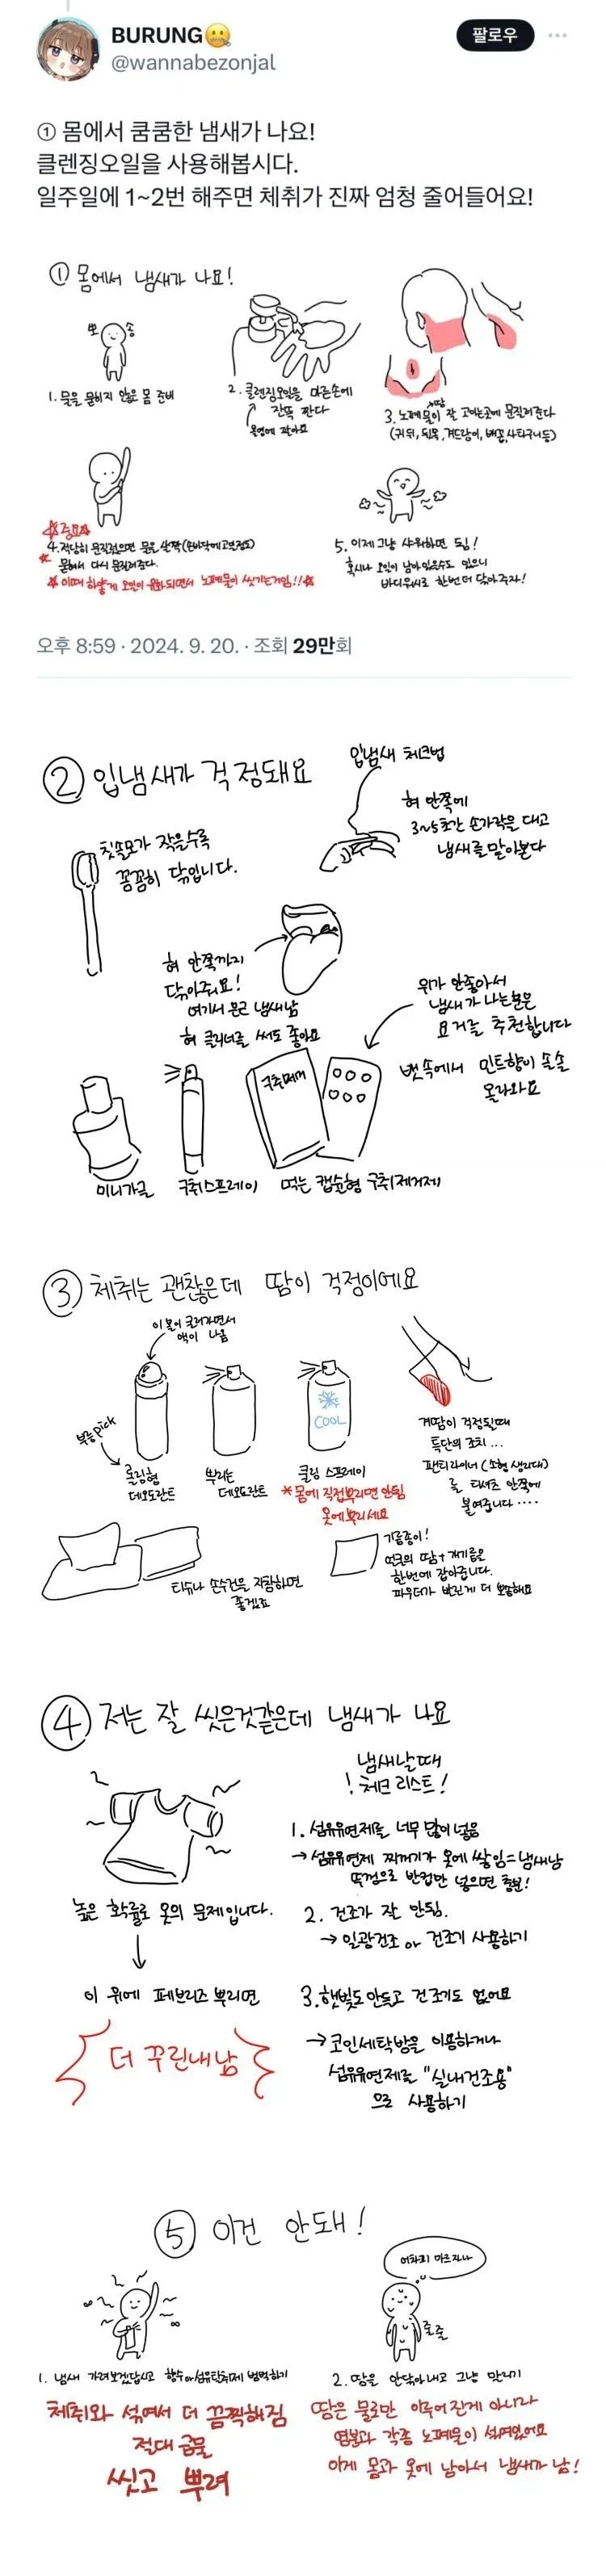 BURUNG
@wannabezonjal
팔로우
① 몸에서 쿰쿰한 냄새가 나요!
클렌징오일을 사용해봅시다.
일주일에 1~2번 해주면 체취가 진짜 엄청 줄어들어요!
① 몸에서 냄새가 나요!
뽀 송
1. 물을 묻히지 않은 몸 준비
2. 클렌징오일을 마른손에
잔뜩 짠다
올영에 많아요
3. 노폐물이 잘 고이는곳에 문질러준다
땀
(귀 뒤, 뒷목, 겨드랑이, 배꼽, 사타구니 등)
중요
4. 적당히 문질렀으면 물을 살짝(손바닥에 고일정도)
묻혀서 다시 문질러준다.
이때 하얗게 오일이 유화되면서 노폐물이 씻기는거임!!
5. 이제 그냥 샤워하면 됨!
혹시나 오일이 남아있을수도 있으니
바디워시로 한번 더 닦아주자!
오후 8:59 · 2024. 9. 20. · 조회 29만회
② 입냄새가 걱정돼요
입냄새 체크법
혀 안쪽에
3~5초간 손가락을 대고
냄새를 맡아본다
칫솔모가 작을수록
꼼꼼히 닦입니다.
혀 안쪽까지
닦아줘요!
여기서 은근 냄새남
혀 클리너를 써도 좋아요
위가 안좋아서
냄새가 나는분은
요거를 추천합니다
뱃속에서 민트향이 솔솔
올라와요
구취제거
미니가글
구취스프레이
먹는 캡슐형 구취제거제
③ 체취는 괜찮은데 땀이 걱정이에요
이 볼이 굴러가면서
액이 나옴
부릉pick
롤링형
데오도란트
뿌리는
데오도란트
COOL
쿨링 스프레이
*몸에 직접뿌리면 안됨
옷에뿌리세요
겨땀이 걱정될때
특단의 조치...
팬티라이너 (소형 생리대)
를 티셔츠 안쪽에
붙여줍니다....
티슈나 손수건을 지참하면
좋겠죠
기름종이!
얼굴의 땀+개기름을
한번에 잡아줍니다.
파우더가 발린게 더 뽀송해요
④ 저는 잘 씻은것같은데 냄새가 나요
냄새날때
! 체크 리스트!
높은 확률로 옷의 문제입니다.
이 위에 페브리즈 뿌리면
더 꾸린내남
1. 섬유유연제를 너무 많이 넣음
→ 섬유유연제 찌꺼기가 옷에 쌓임=냄새남
뚜껑으로 반컵만 넣으면 충분!
2. 건조가 잘 안됨.
→ 일광건조 or 건조기 사용하기
3. 햇빛도 안들고 건조기도 없어요
→ 코인세탁방을 이용하거나
섬유유연제를 "실내건조용"
으로 사용하기
⑤ 이건 안돼!
1. 냄새 가려보겠답시고 향수or섬유탈취제 범벅하기
체취와 섞여서 더 끔찍해짐
절대 금물
씻고 뿌려
어차피 마르자나
줄줄
2. 땀을 안닦아내고 그냥 말리기
땀은 물로만 이루어진게 아니라
염분과 각종 노폐물이 섞여있어요
이게 몸과 옷에 남아서 냄새가 남!